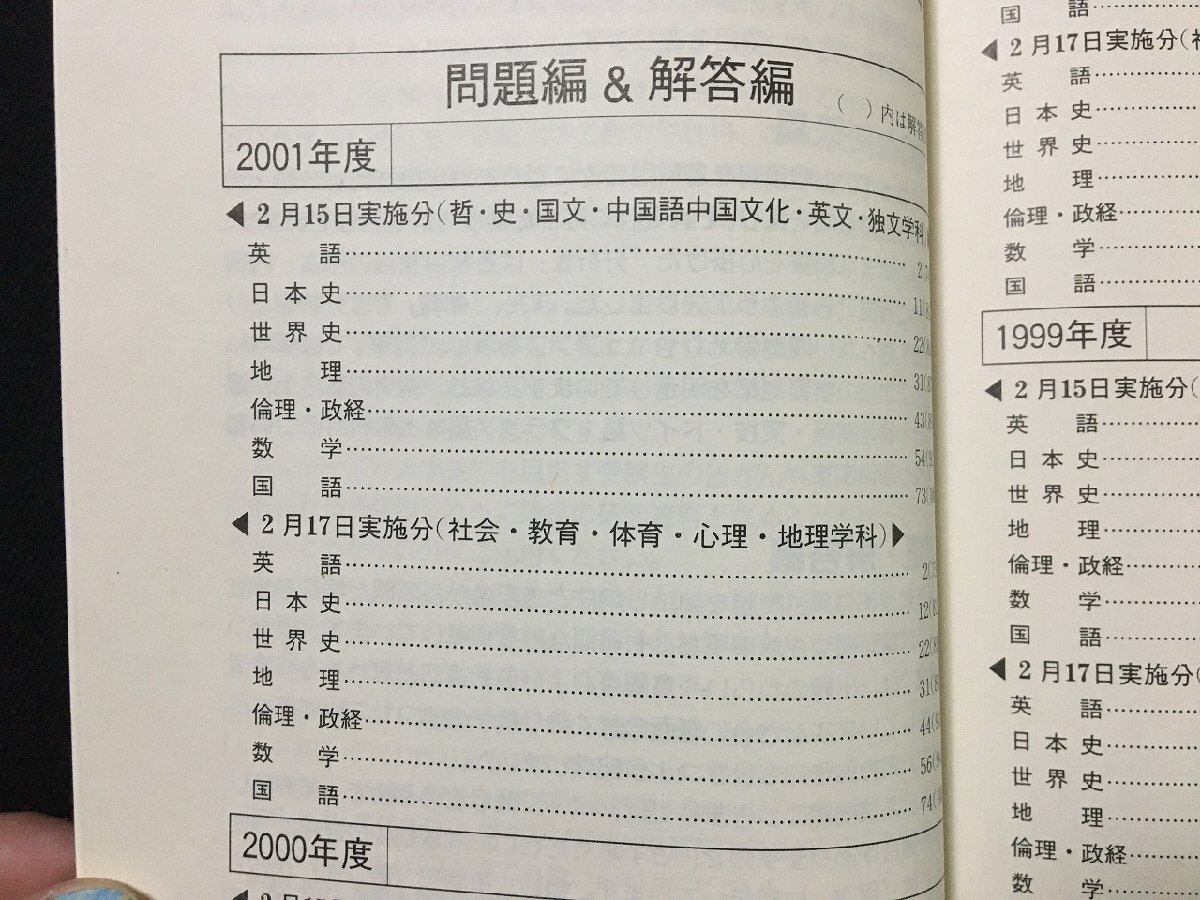 問題編 & 解答編
( )内は解答
2001年度
◀ 2月15日実施分(哲・史・国文・中国語中国文化・英文・独文学科)
英語 2
日本史 11
世界史 22
地理 31
倫理・政経 43
数学 54
国語 73
◀ 2月17日実施分(社会・教育・体育・心理・地理学科)▶
英語 2
日本史 12
世界史 22
地理 31
倫理・政経 44
数学 56
国語 74
2000年度
国語
◀ 2月17日実施分(
英語
日本史
世界史
地理
倫理・政経
数学
国語
1999年度
◀ 2月15日実施分(
英語
日本史
世界史
地理
倫理・政経
数学
国語
◀ 2月17日実施分(
英語
日本史
世界史
地理
倫理・政経
数学